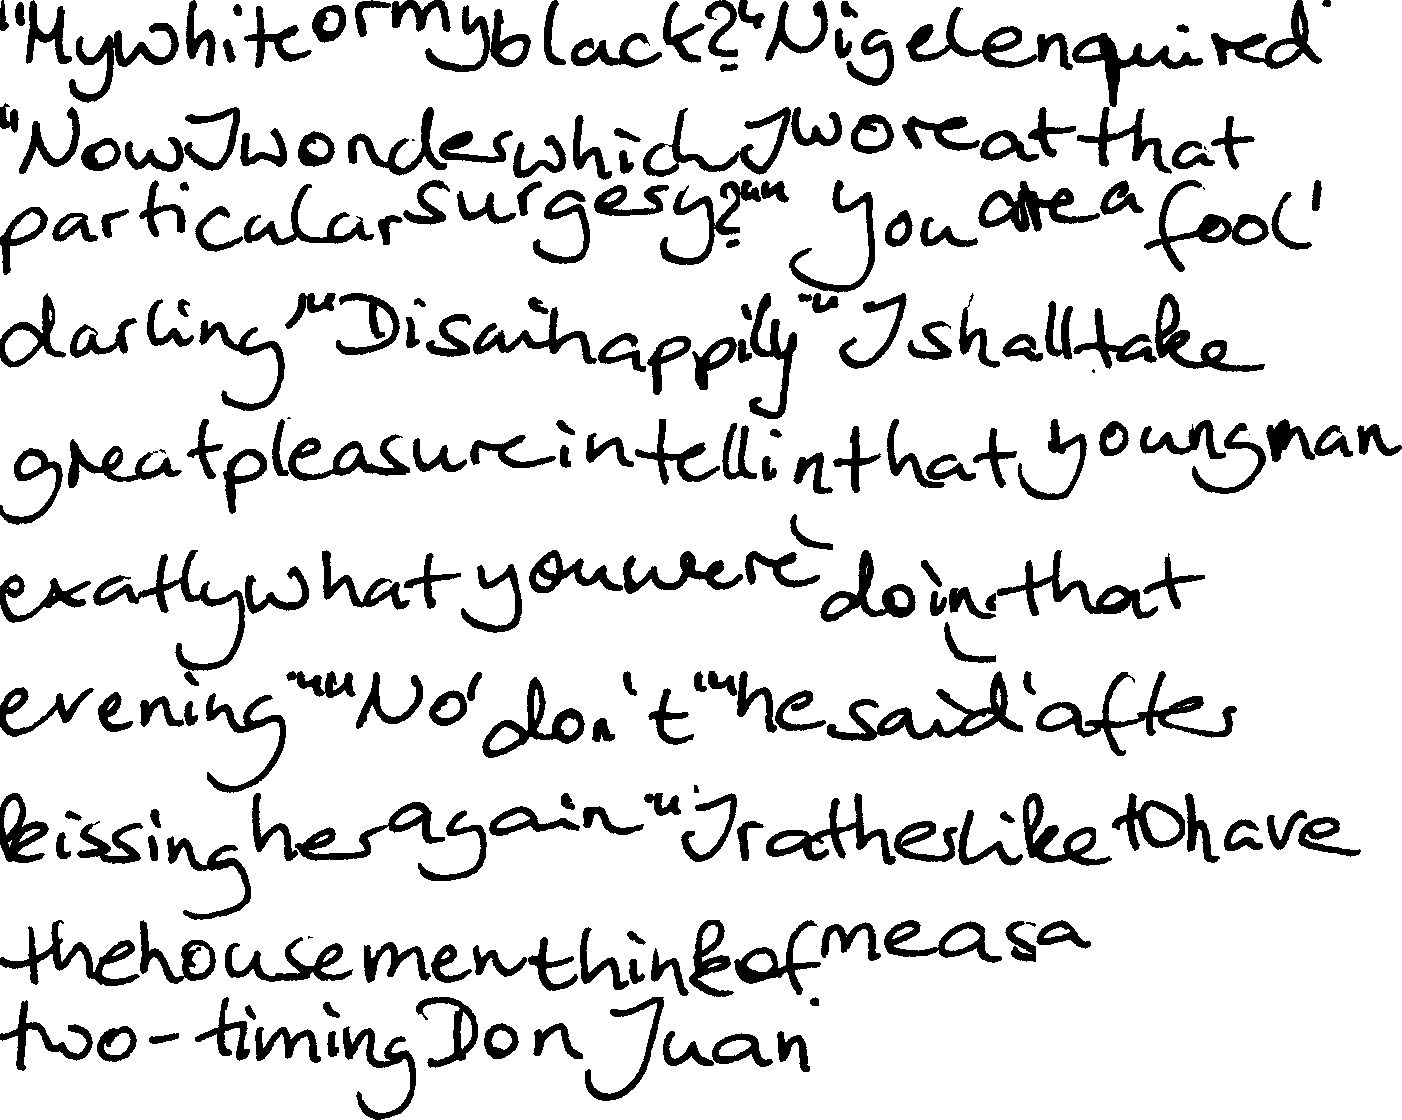 "My white or my black?" Nigel enquired.
"Now I wonder which I wore at that
particular surgery?" "You are a fool,
darling," Di said happily. "I shall take
great pleasure in tellin that young man
exatly what you were doin that
evening." "No, don't," he said, after
kissing her again. "I rather like to have
the housemen think of me as a
two-timing Don Juan.